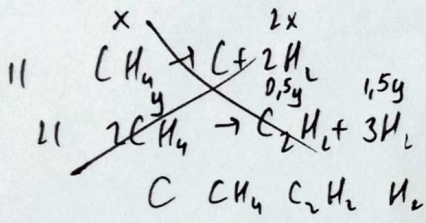 x 2x
1) CH₄ → C + 2H₂
y 0,5y 1,5y
2) 2CH₄ → C₂H₂ + 3H₂
C CH₄ C₂H₂ H₂